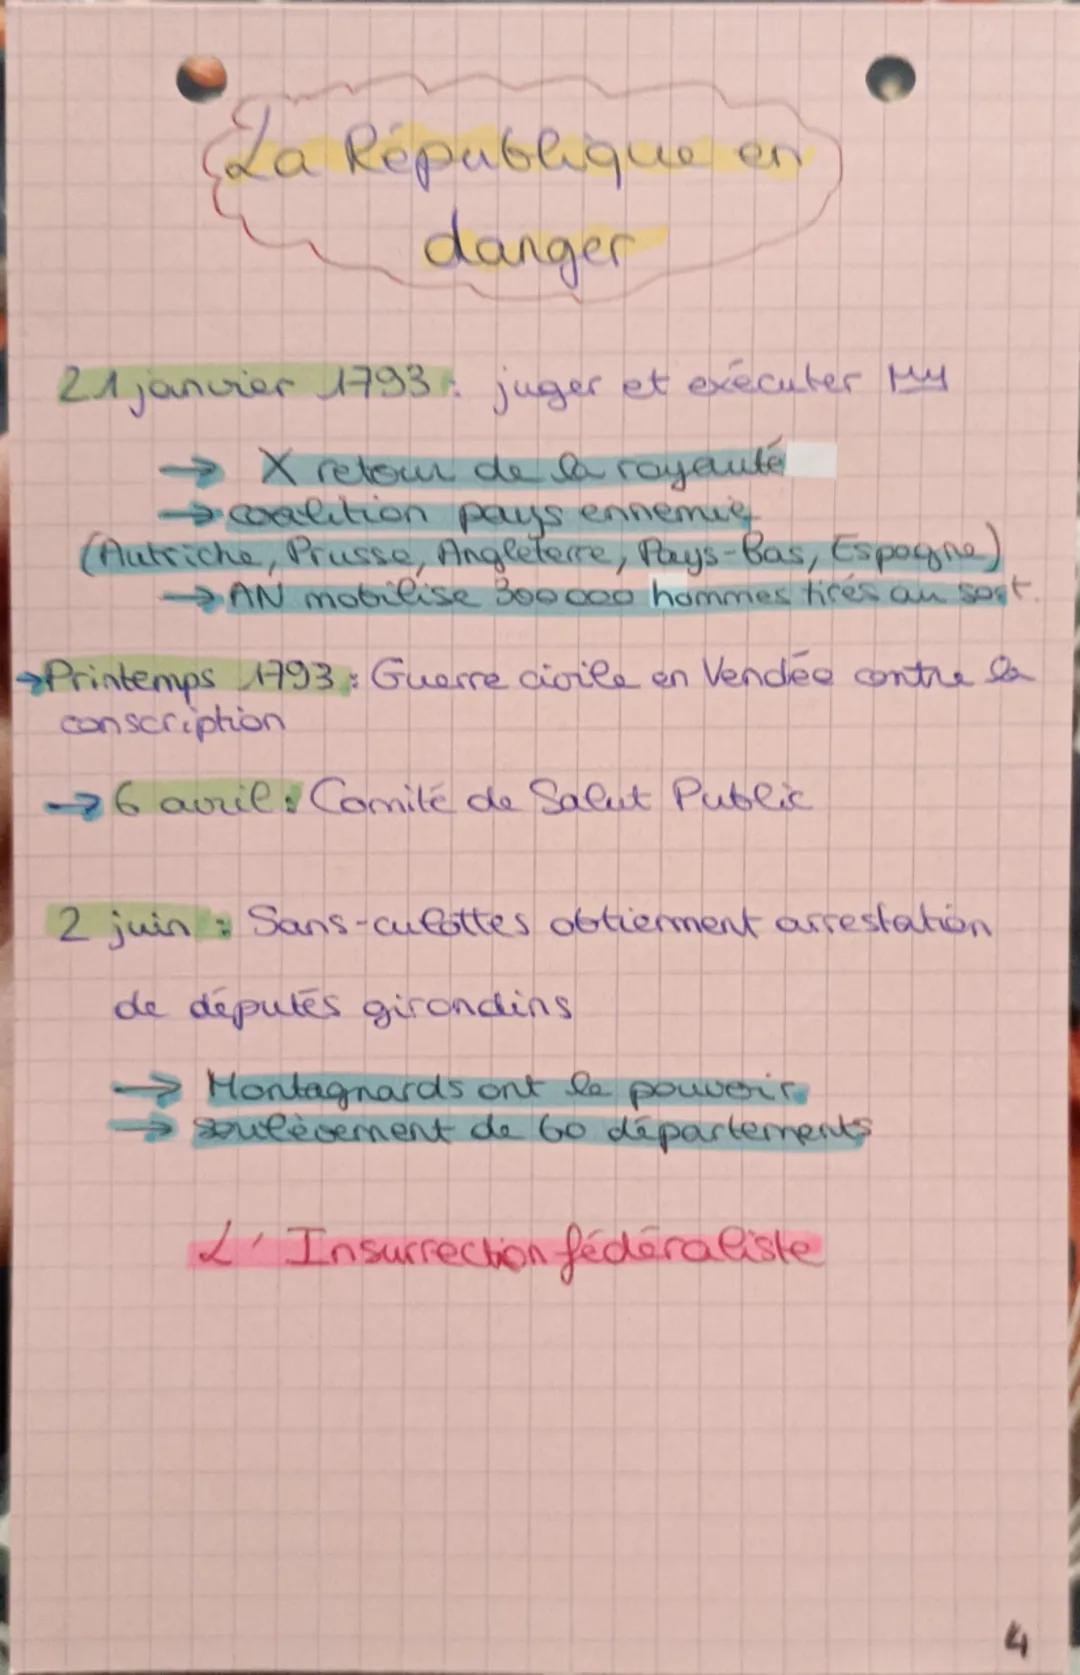 La République en
danger
21 janvier 1793 : juger et exécuter
→ X retour de la royauté
→ coalition pays ennemis
(Autriche, Prusse, Angleterre, Pays-Bas, Espagne)
→ AN mobilise 300 000 hommes tirés au sort.
→ Printemps 1793 : Guerre civile en Vendée contre la
conscription
→ 6 avril : Comité de Salut Public
2 juin : Sans-culottes obtiennent arrestation
de députés girondins
→ Montagnards ont le pouvoir.
→ soulèvement de 60 départements
L'Insurrection fédéraliste
4